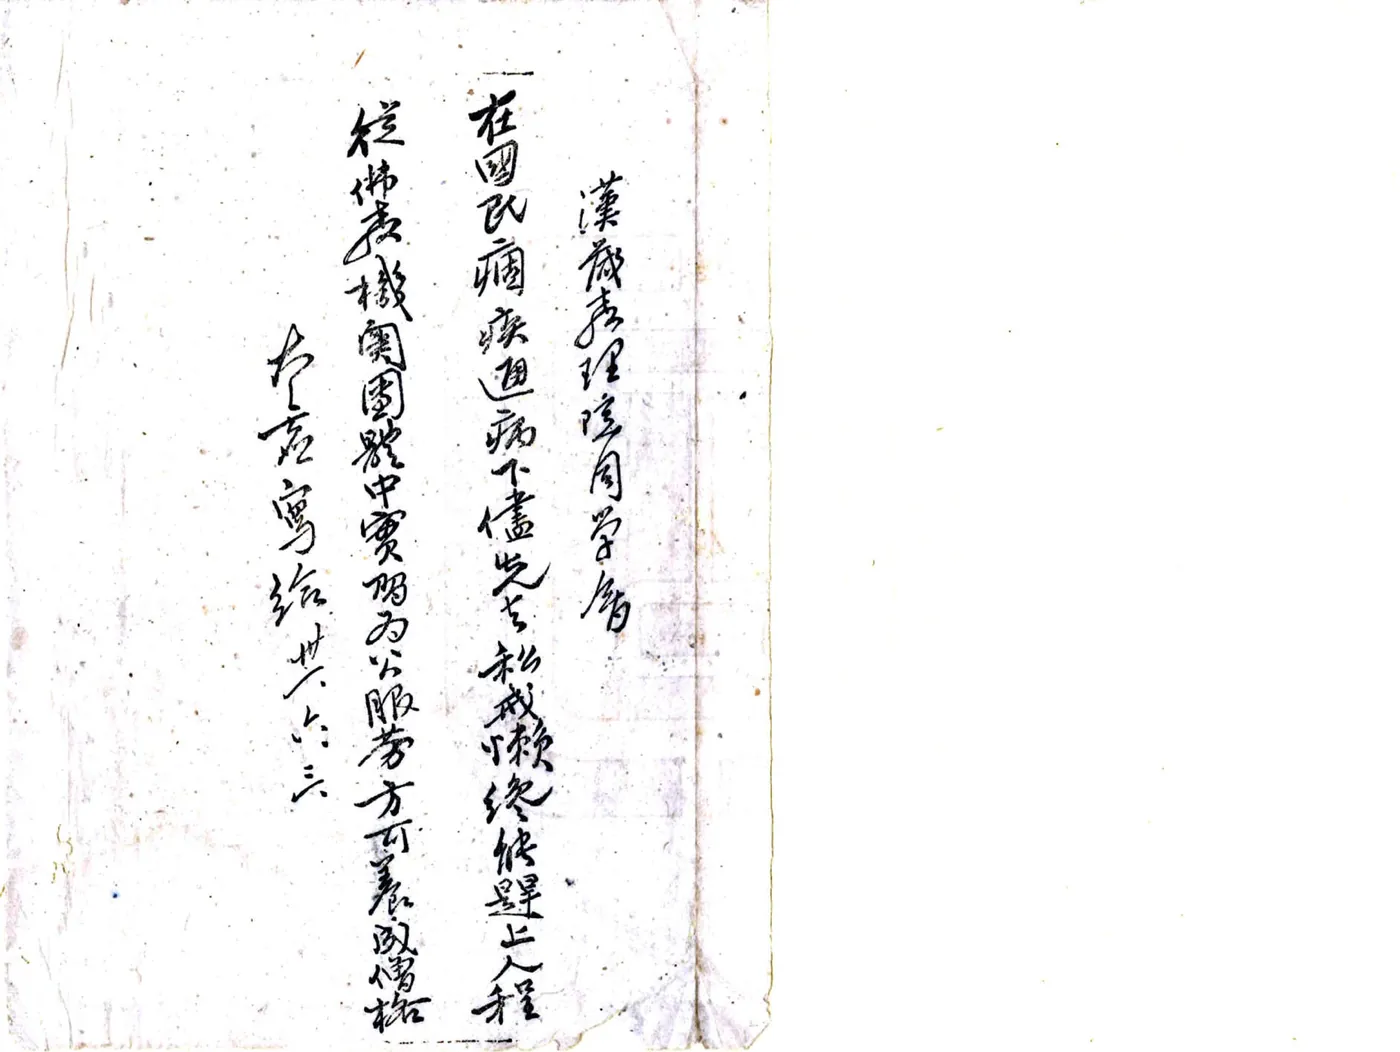 漢藏教理院同學屬
在國民痼疾通病下儘先去私戒懶終能踶上人程
從佛教機關團體中實習為公服勞方可養成僧格
太虛寫給 卅六、六、三、